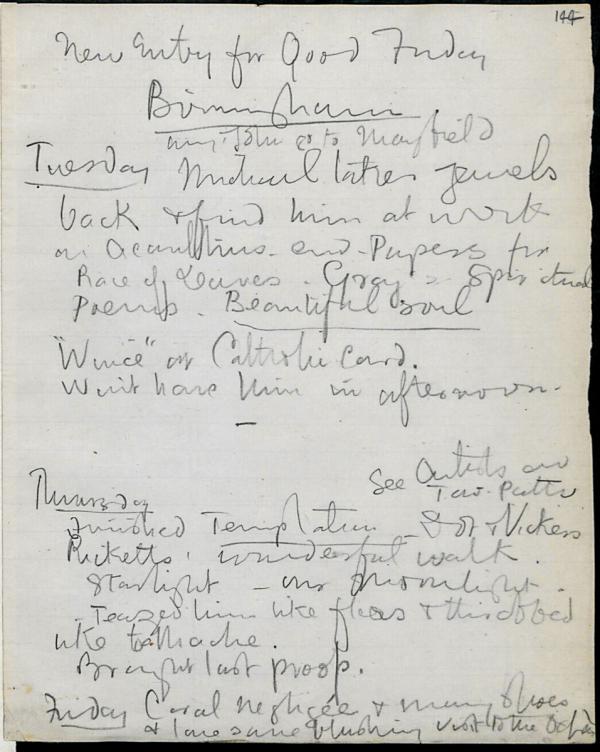 144
New Entry for Good Friday
Birmingham
my John go to Mayfield
Tuesday Michael takes jewels
back & find him at work
on Acanthus and Papers for
Race of Leaves. Gray's Spiritual
Poems. Beautiful soul
"Wince" on Catholic Card.
Won't have him in afternoon.
See Artists on
Tow-Path
Thursday
Finished Temptation & Vickers
Ricketts' wonderful walk.
Starlight – our moonlight.
Teazed him like fleas & throbbed
like toothache.
Brought last proofs.
Friday Coral negligée & many shoes
& blushing visit to the